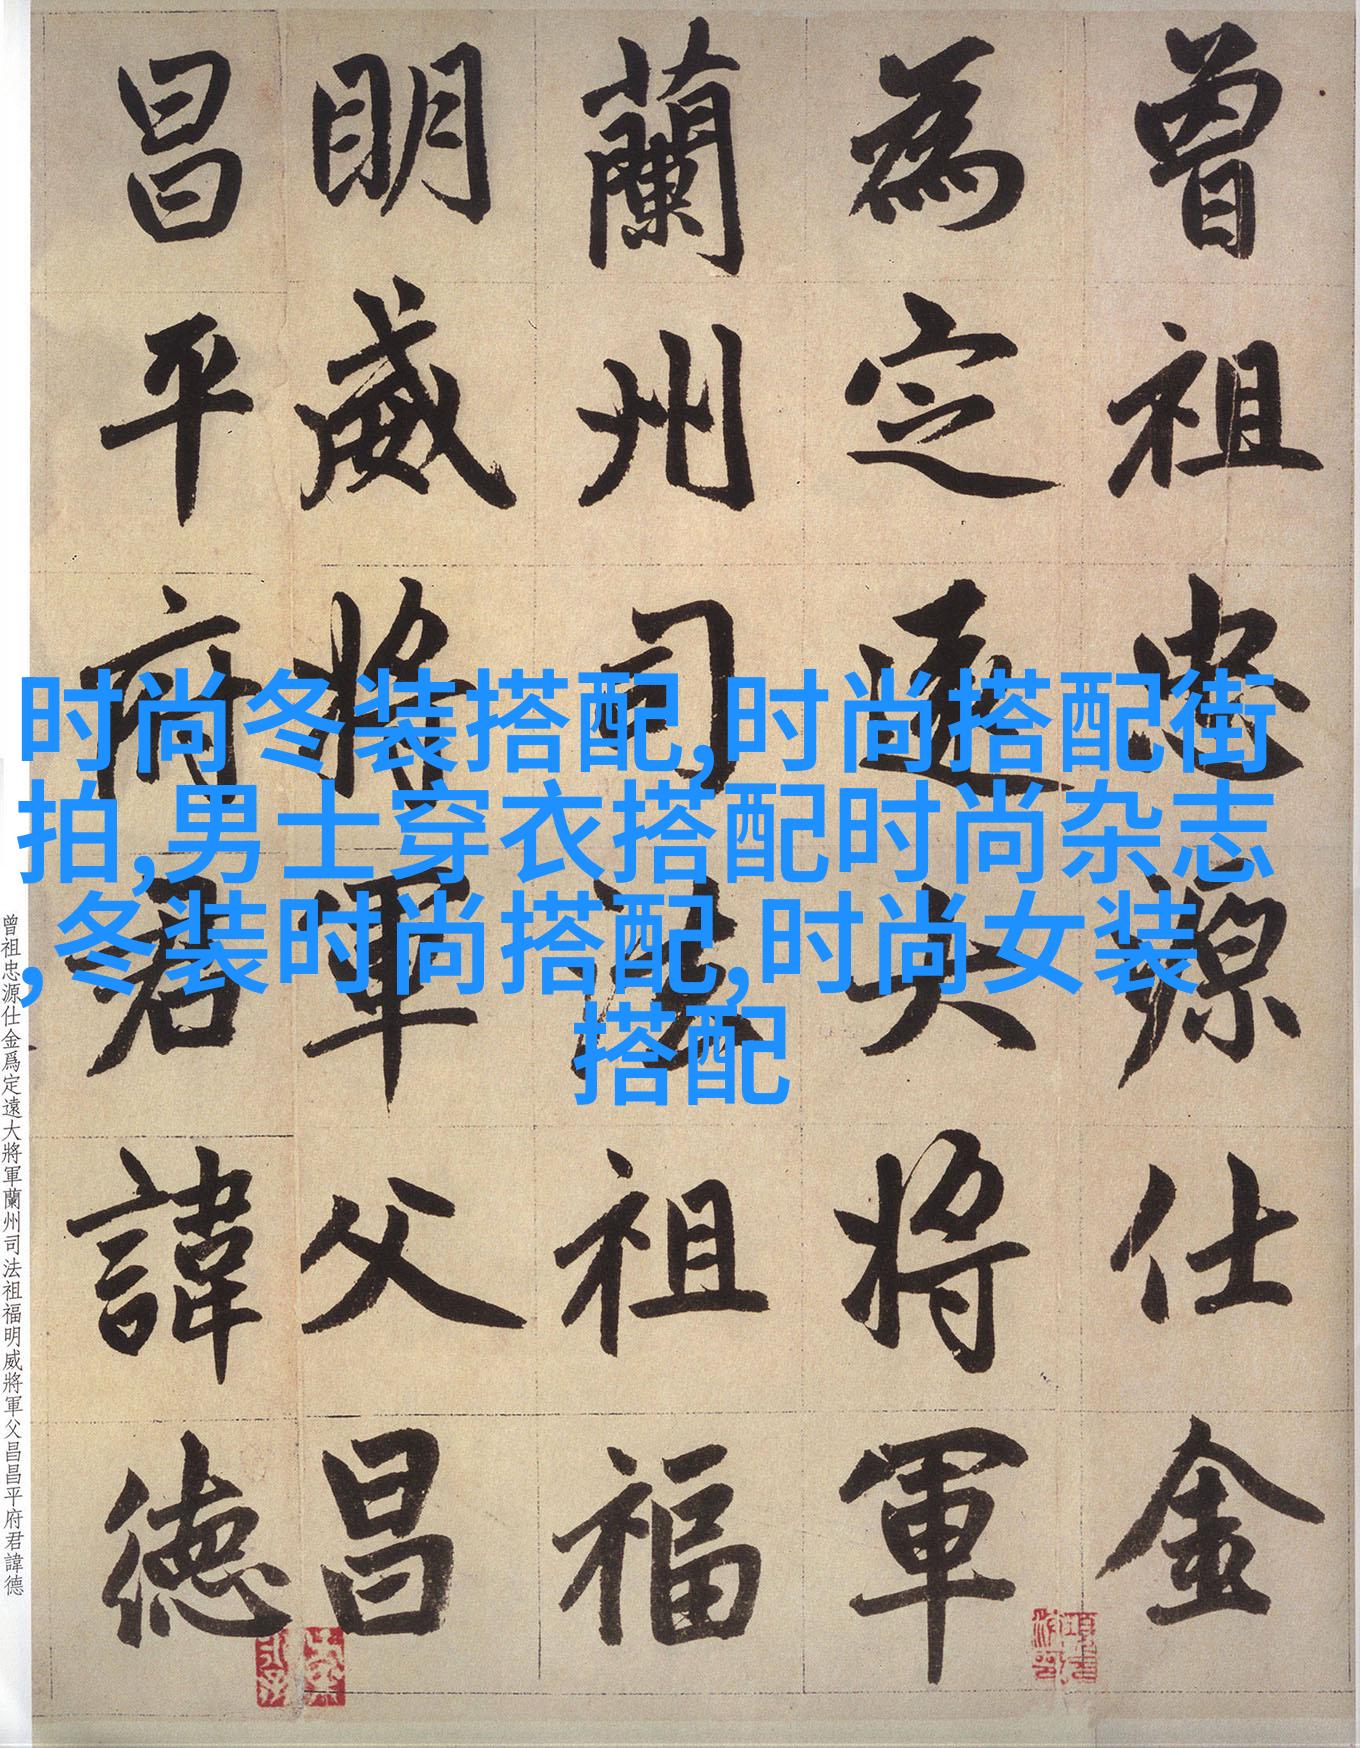 曾祖忠源仕金
為定遠大將軍
蘭州司法祖福
明威將軍父昌
昌平府君諱德
时尚冬装搭配,时尚搭配街
拍,男士穿衣搭配时尚杂志
,冬装时尚搭配,时尚女装
搭配
曾祖忠源仕金爲定遠大將軍蘭州司法祖福明威將軍父昌昌平府君諱德